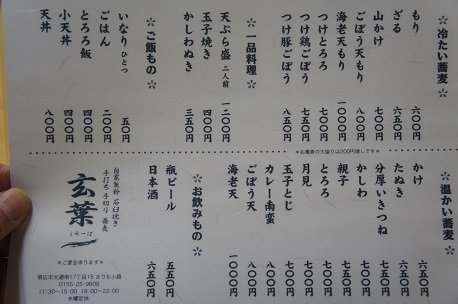 ＊冷たい蕎麦＊
もり 六〇〇円
ざる 六五〇円
山かけ 七〇〇円
ごぼう天もり 八〇〇円
海老天もり 一〇〇〇円
つけとろろ 七〇〇円
つけ鶏ごぼう 七五〇円
つけ豚ごぼう 八五〇円
＊一品料理＊
天ぷら盛 二人前 一二〇〇円
玉子焼き 五〇〇円
かしわぬき 三五〇円
＊ご飯もの＊
いなり ひとつ 五〇円
ごはん 二〇〇円
とろろ飯
小天丼 四〇〇円
天丼 八〇〇円
＊お蕎麦の大盛りは200円増しです＊
＊温かい蕎麦＊
かけ
たぬき 六五〇円
分厚いきつね
かしわ
親子
とろろ
月見
玉子とじ
カレー南蛮
ごぼう天 八〇〇円
海老天 一〇〇〇円
＊お飲みもの＊
瓶ビール 五五〇円
日本酒 六五〇円
自家製粉 石臼挽き
手打ち 手切り 蕎麦
玄葉
くろーば
＊ご宴会承ります＊
帯広市大通南17丁目15 まりも小路
0155-25-9608
11:30～15:00 18:00～22:00
水曜定休